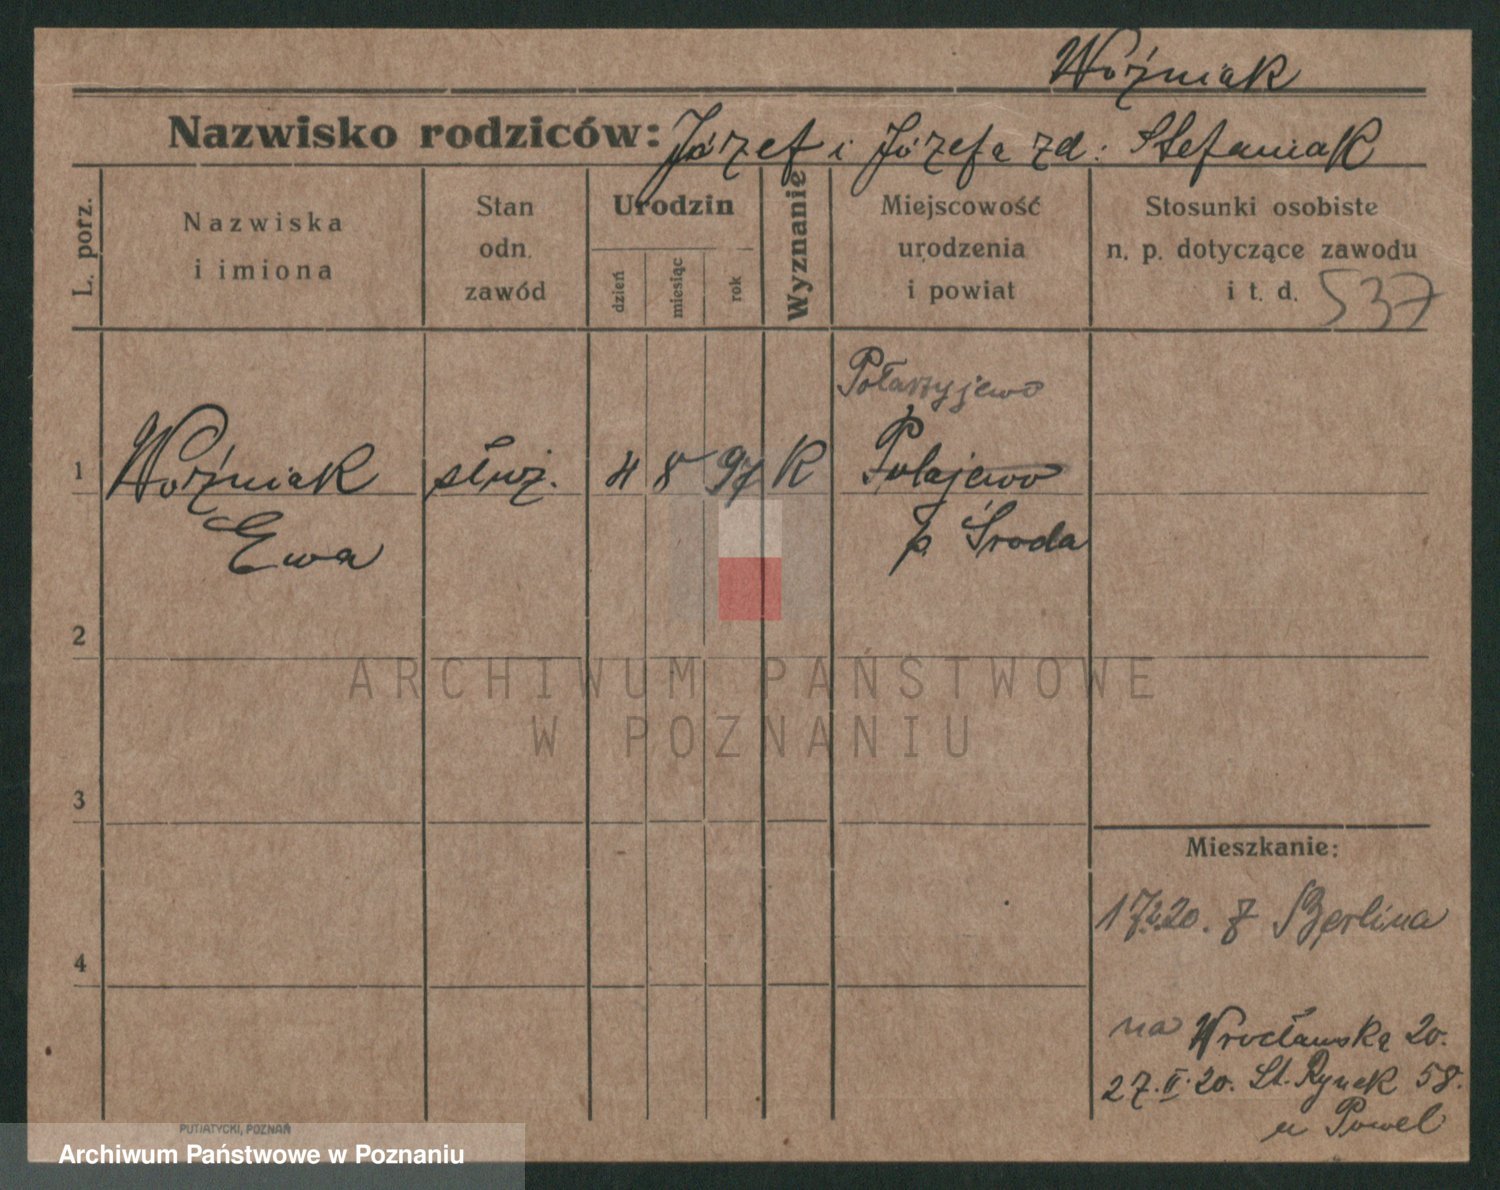 Woźniak
Nazwisko rodziców: Józef i Józefa zd: Stefaniak
L. porz.
Nazwiska
i imiona
Stan
odn.
zawód
Urodzin
dzień
miesiąc
rok
Wyznanie
Miejscowość
urodzenia
i powiat
Stosunki osobiste
n. p. dotyczące zawodu
i t. d. 537
Połażyjewo
1 Woźniak służ. 4 8 97 K Polajewo
Ewa p. Środa
2
ARCHIWUM PAŃSTWOWE
W POZNANIU
3
Mieszkanie:
17.2.20. z Berlina
4
na Wrocławską 20.
27.II.20. St. Rynek 58.
u Powel
PUTIATYCKI, POZNAŃ
Archiwum Państwowe w Poznaniu